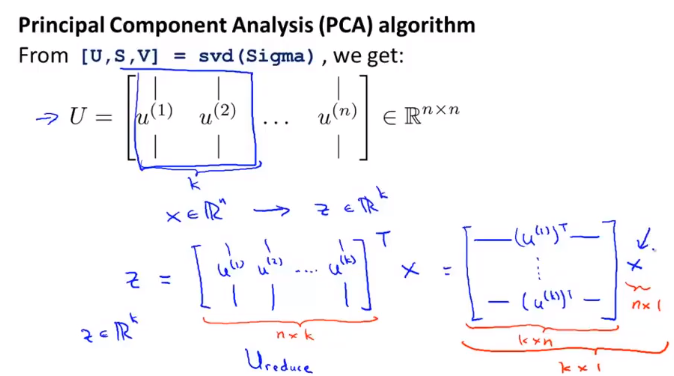 Principal Component Analysis (PCA) algorithm
From [U,S,V] = svd(Sigma), we get:
→ U = [u⁽¹⁾ u⁽²⁾ … u⁽ⁿ⁾] ∈ ℝⁿˣⁿ
k
x ∈ ℝⁿ → z ∈ ℝᵏ
z = [u⁽¹⁾ u⁽²⁾ .... u⁽ᵏ⁾]ᵀ x = [—(u⁽¹⁾)ᵀ— ⋮ —(u⁽ᵏ⁾)ᵀ—] x
z ∈ ℝᵏ
n × k
k × n
n × 1
Ureduce
k × 1